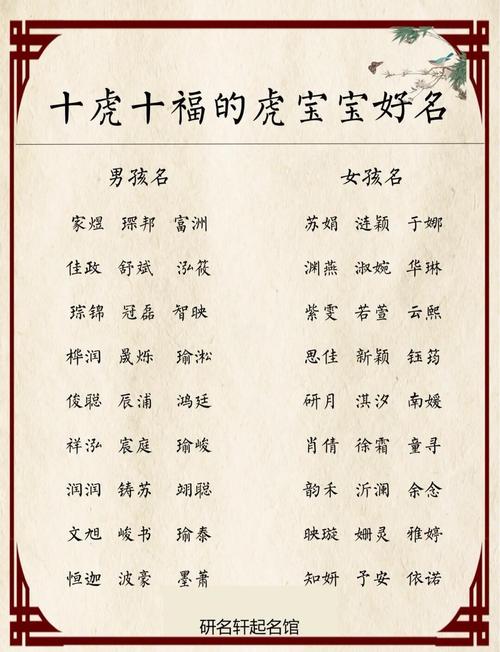 十虎十福的虎宝宝好名
男孩名 女孩名
家煜 琛邦 富洲 苏娟 涟颖 于娜
佳政 舒斌 泓筱 渊燕 淑婉 华琳
琮锦 冠磊 智映 紫雯 若萱 云熙
桦润 晟烁 瑜淞 思佳 新颖 钰筠
俊聪 辰浦 鸿廷 研月 淇汐 南媛
祥泓 宸庭 瑜峻 肖倩 徐霜 童寻
润润 铸苏 翊聪 韵禾 沂澜 余念
文旭 峻书 瑜泰 映璇 姗灵 雅婷
恒迦 波豪 墨萧 知妍 予安 依诺
研名轩起名馆